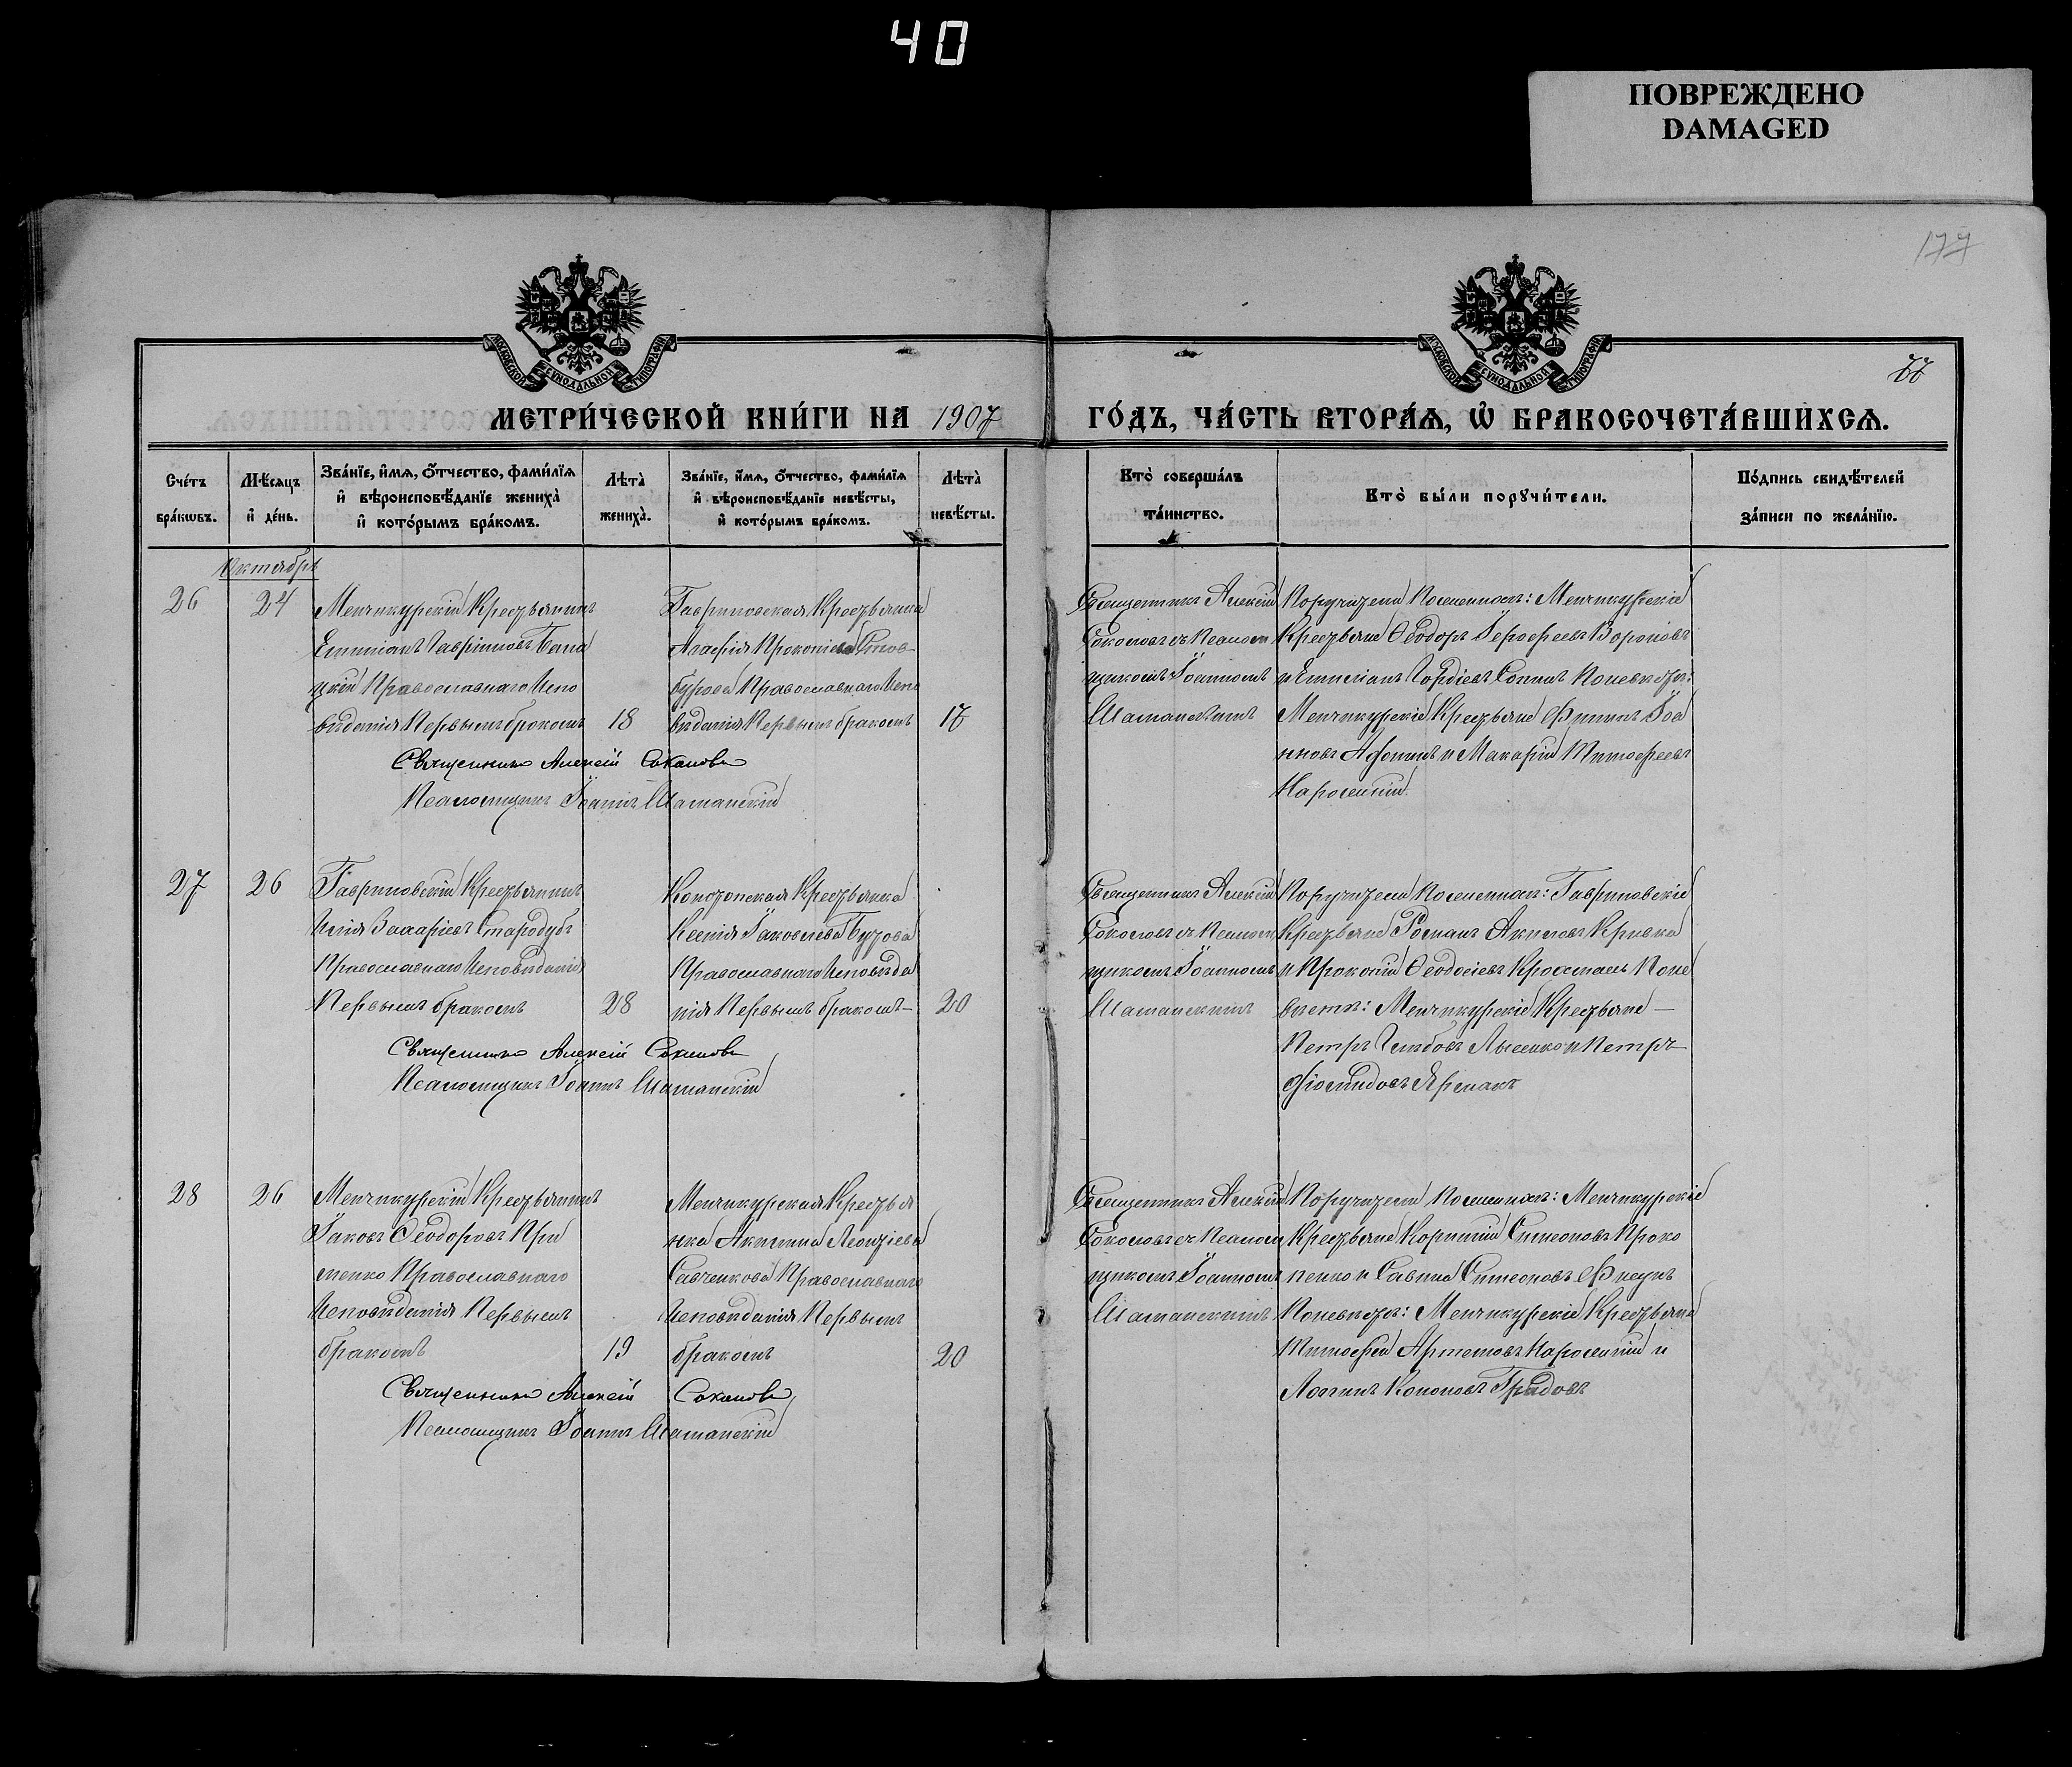 40
ПОВРЕЖДЕНО
DAMAGED
177
77
МОСКОВСКОЙ СѴНОДАЛЬНОЙ ТИПОГРАФІИ
МОСКОВСКОЙ СѴНОДАЛЬНОЙ ТИПОГРАФІИ
МЕТРИ́ЧЕСКОЙ КНИ́ГИ НА 1907 ГО́ДЪ, ЧА́СТЬ ВТОРА́Ѧ, Ѡ БРАКОСОЧЕТА́ВШИХСѦ.
Сче́тъ
бра́кѡвъ.
Мѣ́сяцъ
и де́нь.
Зва́нїе, и́мѧ, ѻ́тчество, фами́лїѧ
и вѣроисповѣ́данїе жениха̀
и кото́рымъ бра́комъ.
Лѣта̀
жениха̀.
Зва́нїе, и́мѧ, ѻ́тчество, фами́лїѧ
и вѣроисповѣ́данїе невѣ́сты,
и кото́рымъ бра́комъ.
Лѣта̀
невѣ́сты.
Кто̀ соверша́лъ
та́инство.
Кто̀ бы́ли порꙋчи́тели.
По́дпись свидѣ́телей
за́писи по жела́нїю.
Октябрь
26
24
Менчикурскій Крестьянинъ
Емиліанъ Гавріиловъ
Православнаго Испо
вѣданія Первымъ бракомъ
18
Гавриловская Крестьянка
Агафія Прокопіева Стов
бурова Православнаго Испо
вѣданія Первымъ бракомъ
17
Священникъ Алексій
Соколовъ съ Псаломщ
щикомъ Іоанномъ
Шаманскимъ
Поручители По женихѣ: Менчикурскіе
Крестьяне Ѳеодоръ Іероѳеевъ Вороновъ
и Емиліанъ Гордіевъ По невѣстѣ:
Менчикурскіе Крестьяне Филипъ Іоа
нновъ Афонинъ и Макарій Тимофеевъ
Нарожній
Священникъ Алексій Соколовъ
Псаломщикъ Іоаннъ Шаманскій
27
26
Гавриловскій Крестьянинъ
Илія Захаріевъ Стародубъ
Православнаго Исповѣданія
Первымъ бракомъ
28
Крестьянка
Ксенія Іаковлева
Православнаго Исповѣда
нія Первымъ бракомъ —
20
Священникъ Алексій
Соколовъ съ Псаломщ
щикомъ Іоанномъ
Шаманскимъ
Поручители По женихѣ: Гавриловскіе
Крестьяне Романъ Акимовъ Кривка
и Прокопій Ѳеодосіевъ По не
вѣстѣ: Менчикурскіе Крестьяне —
Петръ Глѣбовъ Лысенко и Петръ
Діомидовъ Ярмакъ
Священникъ Алексій Соколовъ
Псаломщикъ Іоаннъ Шаманскій
28
26
Менчикурскій Крестьянинъ
Іаковъ Ѳеодоровъ При
Православнаго
Исповѣданія Первымъ
бракомъ
19
Менчикурская Крестья
нка Акилина Леонтіева
Савченкова Православнаго
Исповѣданія Первымъ
бракомъ
20
Священникъ Алексій
Соколовъ съ Псаломщ
щикомъ Іоанномъ
Шаманскимъ
Поручители По женихѣ: Менчикурскіе
Крестьяне Корнилій Симеоновъ Проко
пенко и Савва Симеоновъ
По невѣстѣ: Менчикурскіе Крестьяне
Тимофей Артемовъ Нарожній и
Логинъ Кононовъ
Священникъ Алексій Соколовъ
Псаломщикъ Іоаннъ Шаманскій